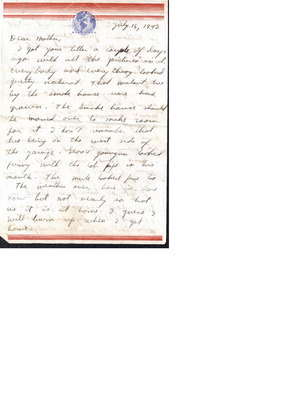 July 16, 1943
Dear Mother,
I got your letter a couple of days
ago with all the pictures in it.
Everybody and every thing looked
pretty natural. That walnut tree
by the smoke house sure has
grown. The smoke house should
be moved over to make room
for it. I don't remember that
tree being on the west side of
the garage. George looked
funny with the cob pipe in his
mouth. The mule looked fine too.
The weather over here is
now but not nearly as hot
as it is at home. I guess I
will burn up when I get
home.